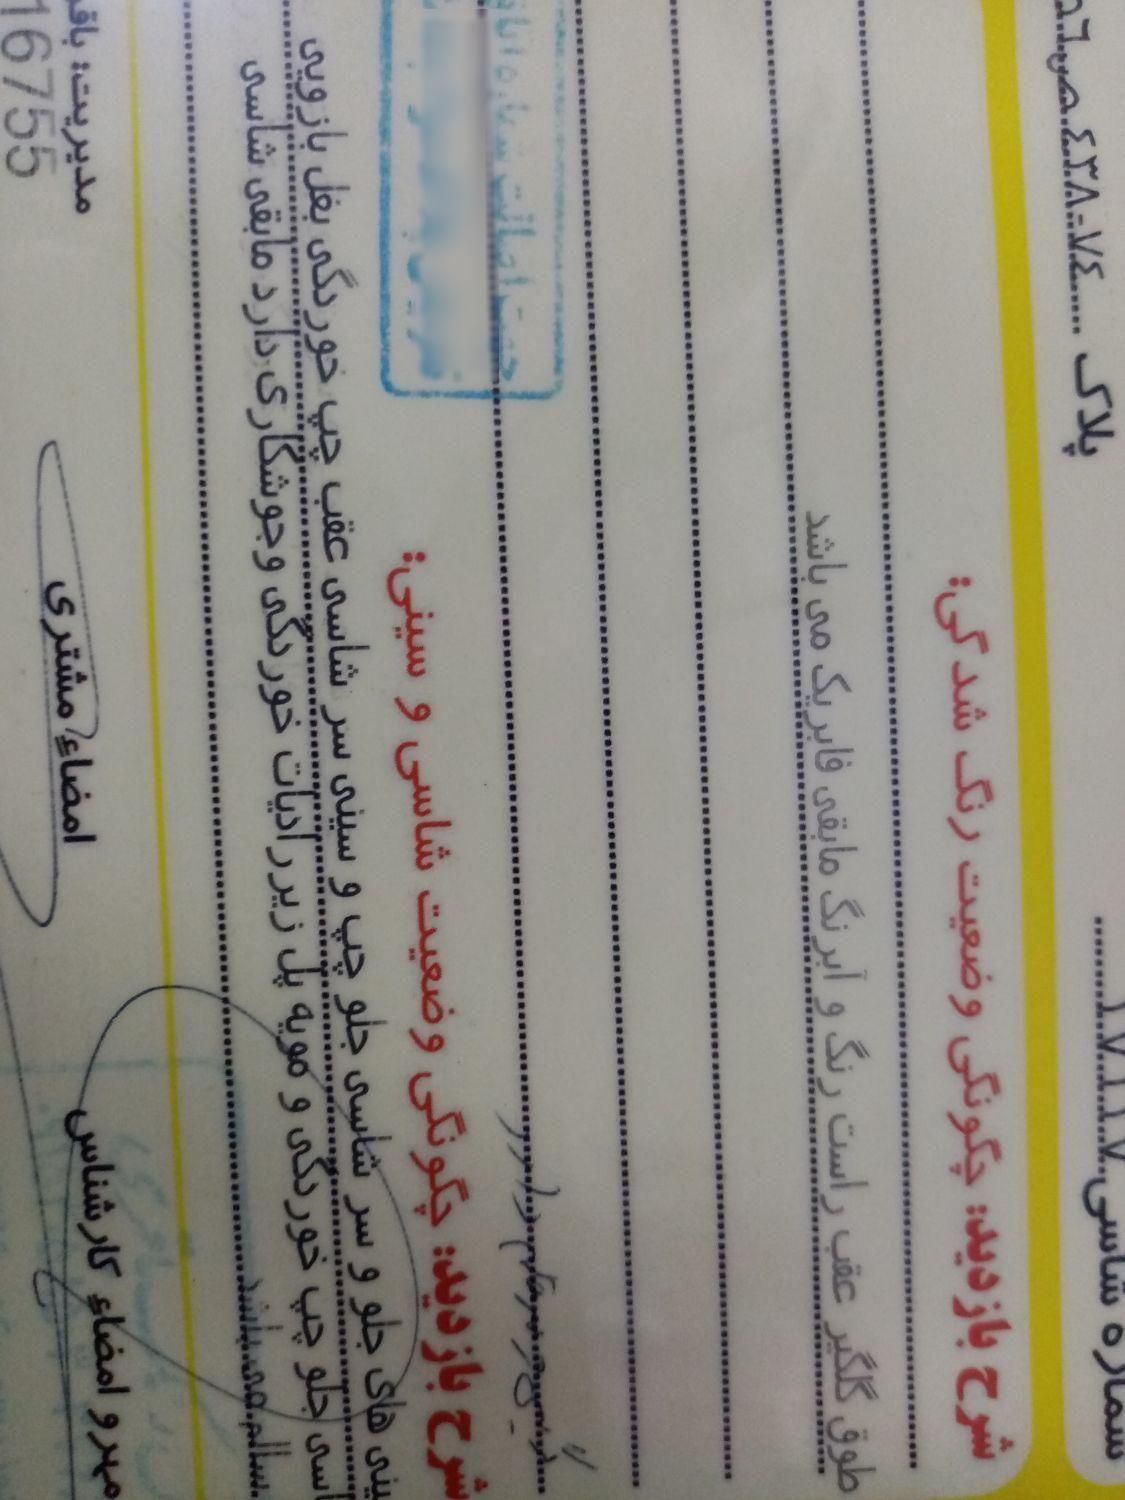 شماره شاسی ۱۷۱۱۷
پلاک ۷٤-٤٣٨ص٦
شرح بازدید: چگونگی وضعیت رنگ شدگی:
طوق گلگیر عقب راست رنگ و آبرنگ مابقی فابریک می باشد
شرح بازدید: چگونگی وضعیت شاسی و سینی:
ینی های جلو و سر شاسی جلو چپ و سینی سر شاسی عقب چپ خوردگی بغل بازویی
اسی جلو چپ خوردگی و مویه پل زیر رادیات خوردگی وجوشگاری دارد مابقی شاسی
سالم می باشد
مهر و امضاء کارشناس
امضاء مشتری
مدیریت: باقر
16755